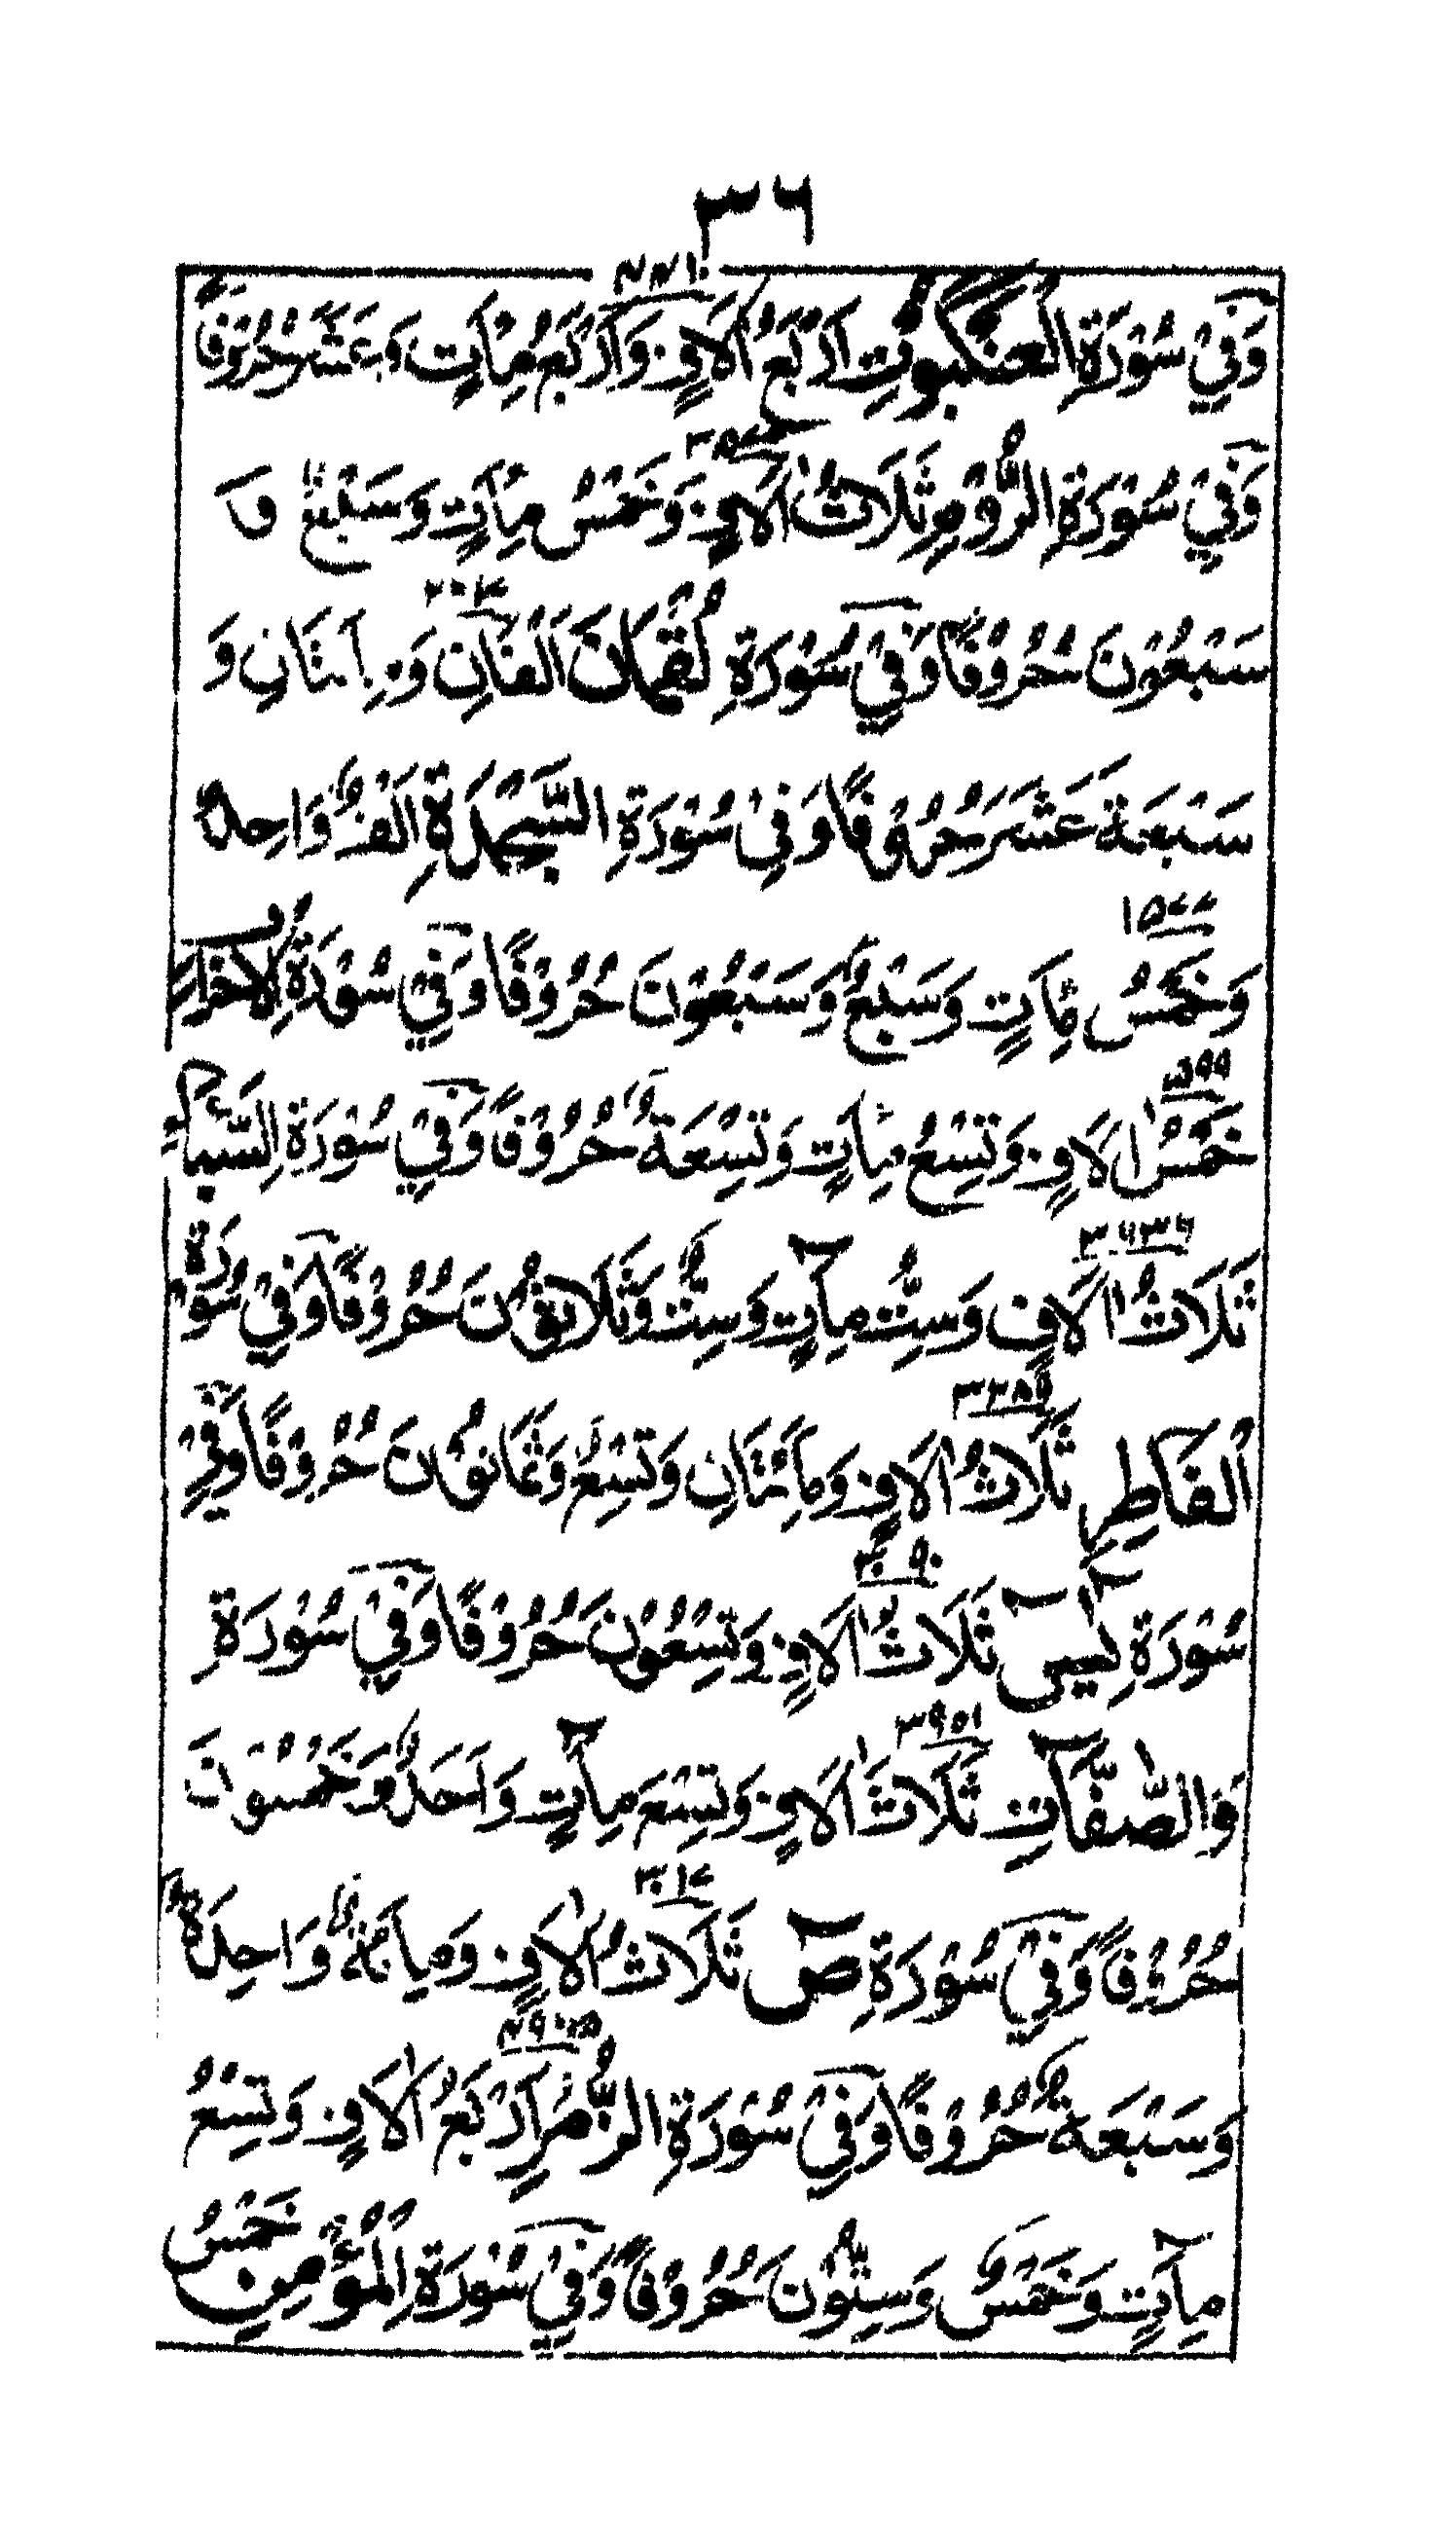 ٣٦
٤٤١٠
وَفِيْ سُوْرَةِ الْعَنْكَبُوْتِ اَرْبَعُ اٰلَافٍ وَاَرْبَعُ مِاٰتٍ وَعَشَرَ حُرُوْفًا
٣٥٧٧
وَفِيْ سُوْرَةِ الرُّوْمِ ثَلَاثُ اٰلَافٍ وَخَمْسُ مِاٰتٍ وَسَبْعٌ وَ
سَبْعُوْنَ حُرُوْفًا وَفِيْ سُوْرَةِ لُقْمَانَ اَلْفَانِ وَ مِاَتَانِ وَ
سَبْعَةَ عَشَرَ حُرُوْفًا وَفِيْ سُوْرَةِ السَّجْدَةِ اَلْفٌ وَاحِدٌ
١٥٧٧
وَخَمْسُ مِاٰتٍ وَسَبْعٌ وَسَبْعُوْنَ حُرُوْفًا وَفِيْ سُوْرَةِ الْاَحْزَابِ
٥٩٠٩
خَمْسُ اٰلَافٍ وَتِسْعُ مِاٰتٍ وَتِسْعَةٌ حُرُوْفًا وَفِيْ سُوْرَةِ السَّبَاِ
٣٦٣٦
ثَلَاثُ اٰلَافٍ وَسِتُّ مِاٰتٍ وَسِتٌّ وَّثَلَاثُوْنَ حُرُوْفًا وَفِيْ سُوْرَةِ
٣٢٨٩
الْفَاطِرِ ثَلَاثُ اٰلَافٍ وَمِاَئَتَانِ وَتِسْعٌ وَثَمَانُوْنَ حُرُوْفًا وَفِيْ
٣٠٩٠
سُوْرَةِ يٰسٓ ثَلَاثُ اٰلَافٍ وَتِسْعُوْنَ حُرُوْفًا وَفِيْ سُوْرَةِ
٣٩٥١
وَالصّٰٓفّٰتِ ثَلَاثَ اٰلَافٍ وَتِسْعَ مِاٰتٍ وَاَحَدٌ وَخَمْسُوْنَ
٣١٠٧
حُرُوْفًا وَفِيْ سُوْرَةِ صٓ ثَلَاثُ اٰلَافٍ وَمِائَةٌ وَاحِدَةٌ
٤٩٦٥
وَسَبْعَةٌ حُرُوْفًا وَفِيْ سُوْرَةِ الزُّمَرِ اَرْبَعُ اٰلَافٍ وَتِسْعُ
مِاٰتٍ وَخَمْسٌ وَسِتُّوْنَ حُرُوْفًا وَفِيْ سُوْرَةِ الْمُؤْمِنِ خَمْسُ